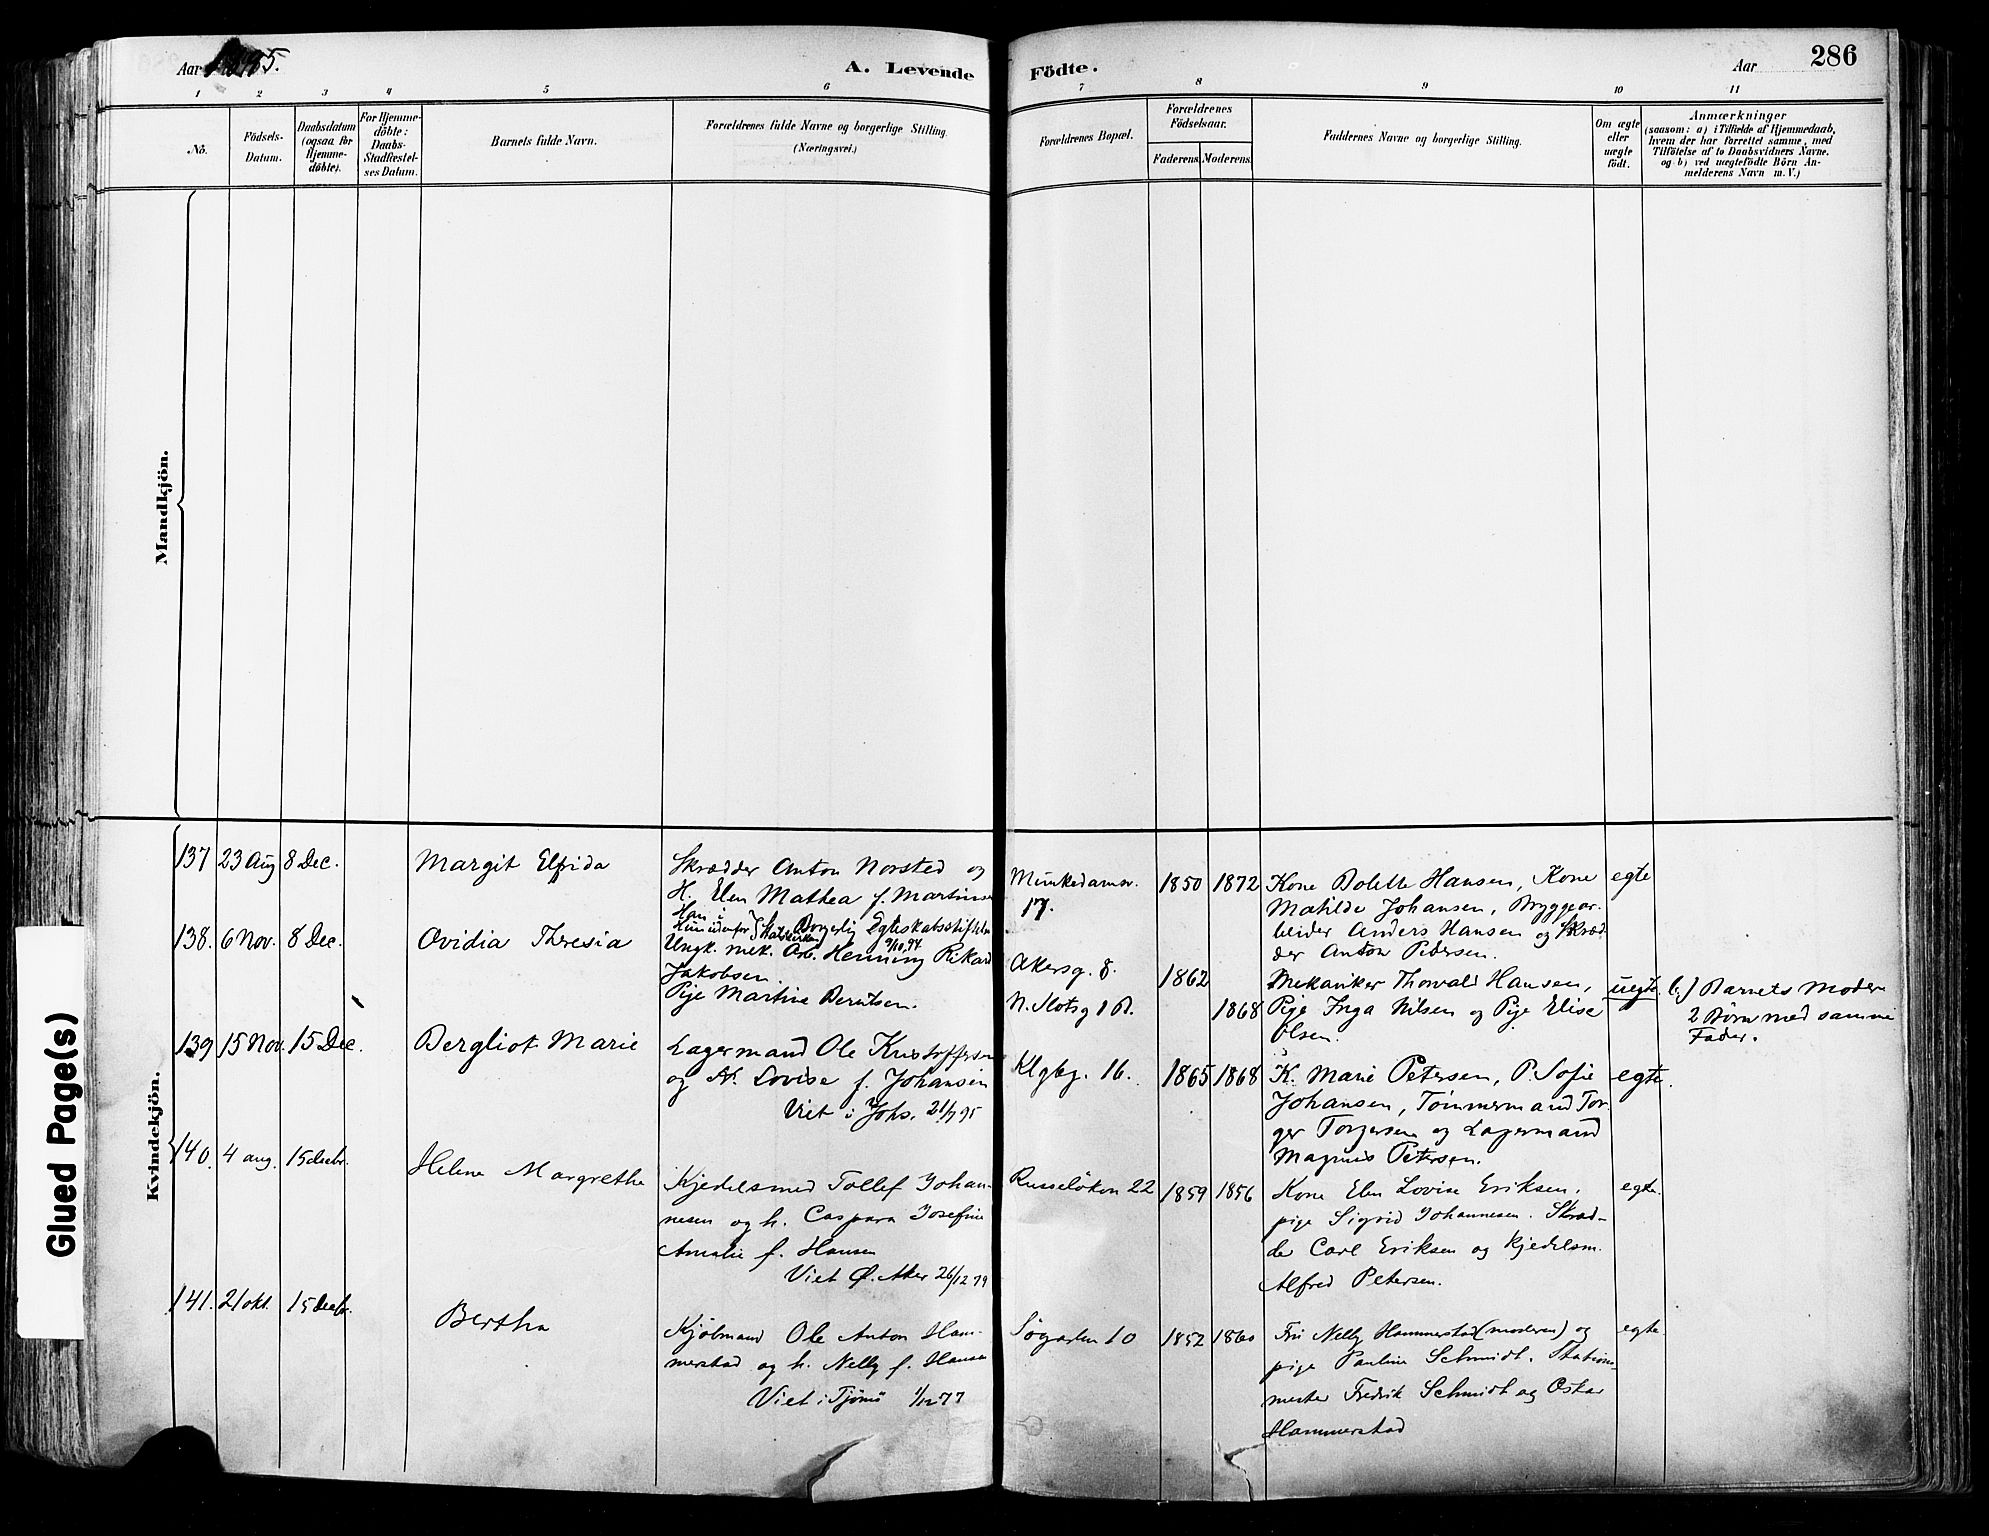 Aar 1895.
A. Levende
Födte.
Aar
286
1
2
3
4
5
6
7
8
9
10
11
No.
Födsels-
Datum.
Daabsdatum
(ogsaa for
Hjemme-
döbte).
For Hjemme-
döbte:
Daabs-
Stadfæstel-
ses Datum.
Barnets fulde Navn.
Forældrenes fulde Navne og borgerlige Stilling.
(Næringsvei.)
Forældrenes Bopæl.
Forældrenes
Födselsaar.
Faderens.
Moderens.
Faddernes Navne og borgerlige Stilling.
Om ægte
eller
uægte
födt.
Anmærkninger
(saasom: a) i Tilfælde af Hjemmedaab,
hvem der har forrettet samme, med
Tilföielse af to Daabsvidners Navne,
og b) ved uægtefödte Börn An-
melderens Navn m. V.)
Mandkjön.
Kvindekjön.
Glued Page(s)
137 23 Aug 8 Dec.
Margit Elfrida
Skrædder Anton Norsted og
H. Elen Mathea f. Martins
Han i
Hun udenfor Statskirken Borgerlig Egteskabsstiftelse
9/10.94.
Munkedamsv.
17.
1850 1872
Kone Bolette Hansen, Kone
Matilde Johansen, Bryggear-
beider Anders Hansen og Skræd-
der Anton Pedersen.
egte
138. 6 Nov. 8 Dec.
Ovidia Theresia
Ungk. mek. Arb. Henning Rikard
Jakobsen.
Pige Martine Berntsen.
Akersg. 8.
N. Slotsg 1 B.
1862
1868
Mekaniker Thorvald Hansen,
Pige Inga Nilsen og Pige Elise
Olsen.
uegte.
b.) Barnets Moder
2 Børn med samme
Fader.
139 15 Nov. 15 Dec.
Bergliot Marie
Lagermand Ole Kristoffersen
og H. Lovise f. Johansen
Viet i Johs. 21/7 95
Klgbg. 16.
1865 1868
K. Marie Petersen, P. Sofie
Johansen, Tømmermand Tor-
ger Torgersen og Lagermand
Magnus Petersen.
egte.
140. 4 aug. 15 decbr.
Helene Margrethe
Kjedelsmed Tollef Johan-
nesen og h. Caspara Josefine
Amalie f. Hansen
Viet Ø. Aker 26/12 79
Ruseløkvn 22
1859 1856
Kone Elen Lovise Eriksen,
pige Sigrid Johannesen. Skræd-
der Carl Eriksen og kjedelsm.
Alfred Petersen.
egte.
141. 21 okt. 15 decbr.
Bertha
Kjøbmand Ole Anton Ham-
merstad og h. Nelly f. Hansen
Viet i Tjømø 1/12 77
Søgaden 10
1852 1860
Fru Nelly Hammerstad (moderen) og
pige Pauline Schmidt. Stations-
mester Fredrik Schmidt og Oskar
Hammerstad
egte.